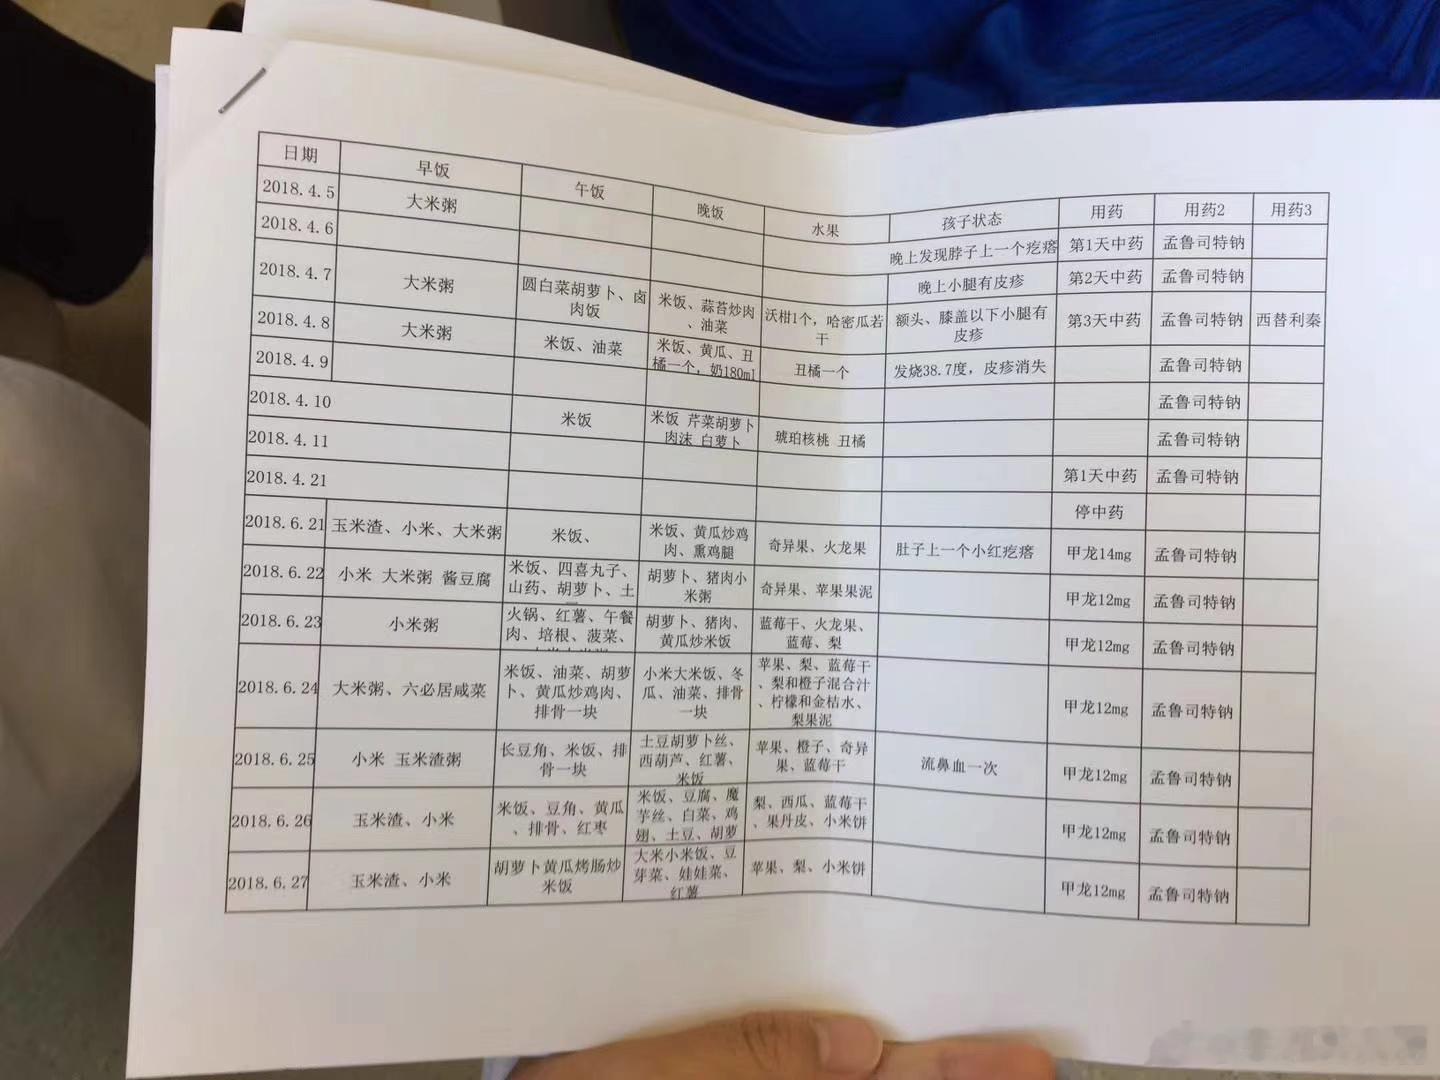 日期 早饭 午饭 晚饭 水果 孩子状态 用药 用药2 用药3
2018.4.5 大米粥 晚上发现脖子上一个疙瘩 第1天中药 孟鲁司特钠
2018.4.6 晚上小腿有皮疹 第2天中药 孟鲁司特钠
2018.4.7 大米粥 圆白菜胡萝卜、卤肉饭 米饭、蒜苔炒肉、油菜 沃柑1个，哈密瓜若干 额头、膝盖以下小腿有皮疹 第3天中药 孟鲁司特钠 西替利秦
2018.4.8 大米粥 米饭、油菜 米饭、黄瓜、丑橘一个，奶180ml 丑橘一个 发烧38.7度，皮疹消失 孟鲁司特钠
2018.4.9 孟鲁司特钠
2018.4.10 米饭 米饭 芹菜胡萝卜肉沫 白萝卜 琥珀核桃 丑橘 孟鲁司特钠
2018.4.11 第1天中药 孟鲁司特钠
2018.4.21 停中药
2018.6.21 玉米渣、小米、大米粥 米饭、 米饭、黄瓜炒鸡肉、熏鸡腿 奇异果、火龙果 肚子上一个小红疙瘩 甲龙14mg 孟鲁司特钠
2018.6.22 小米 大米粥 酱豆腐 米饭、四喜丸子、山药、胡萝卜、土 胡萝卜、猪肉小米粥 奇异果、苹果果泥 甲龙12mg 孟鲁司特钠
2018.6.23 小米粥 火锅、红薯、午餐肉、培根、菠菜、 胡萝卜、猪肉、黄瓜炒米饭 蓝莓干、火龙果、蓝莓、梨 甲龙12mg 孟鲁司特钠
2018.6.24 大米粥、六必居咸菜 米饭、油菜、胡萝卜、黄瓜炒鸡肉、排骨一块 小米大米饭、冬瓜、油菜、排骨一块 苹果、梨、蓝莓干、梨和橙子混合汁、柠檬和金桔水、梨果泥 甲龙12mg 孟鲁司特钠
2018.6.25 小米 玉米渣粥 长豆角、米饭、排骨一块 土豆胡萝卜丝、西葫芦、红薯、米饭 苹果、橙子、奇异果、蓝莓干 流鼻血一次 甲龙12mg 孟鲁司特钠
2018.6.26 玉米渣、小米 米饭、豆角、黄瓜、排骨、红枣 米饭、豆腐、魔芋丝、白菜、鸡翅、土豆、胡萝 梨、西瓜、蓝莓干、果丹皮、小米饼 甲龙12mg 孟鲁司特钠
2018.6.27 玉米渣、小米 胡萝卜黄瓜烤肠炒米饭 大米小米饭、豆芽菜、娃娃菜、红薯 苹果、梨、小米饼 甲龙12mg 孟鲁司特钠